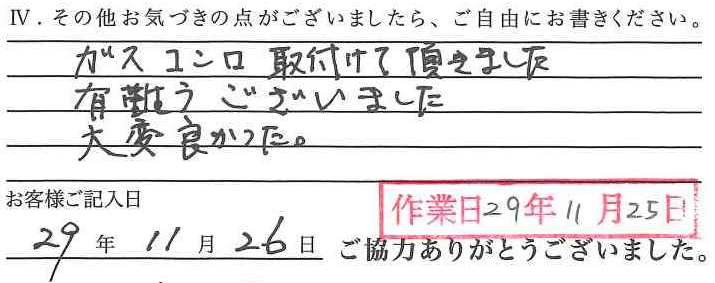 Ⅳ．その他お気づきの点がございましたら、ご自由にお書きください。
ガスコンロ 取付けて頂きました
有難うございました
大変良かった。
お客様ご記入日
作業日29年11月25日
29年11月26日 ご協力ありがとうございました。